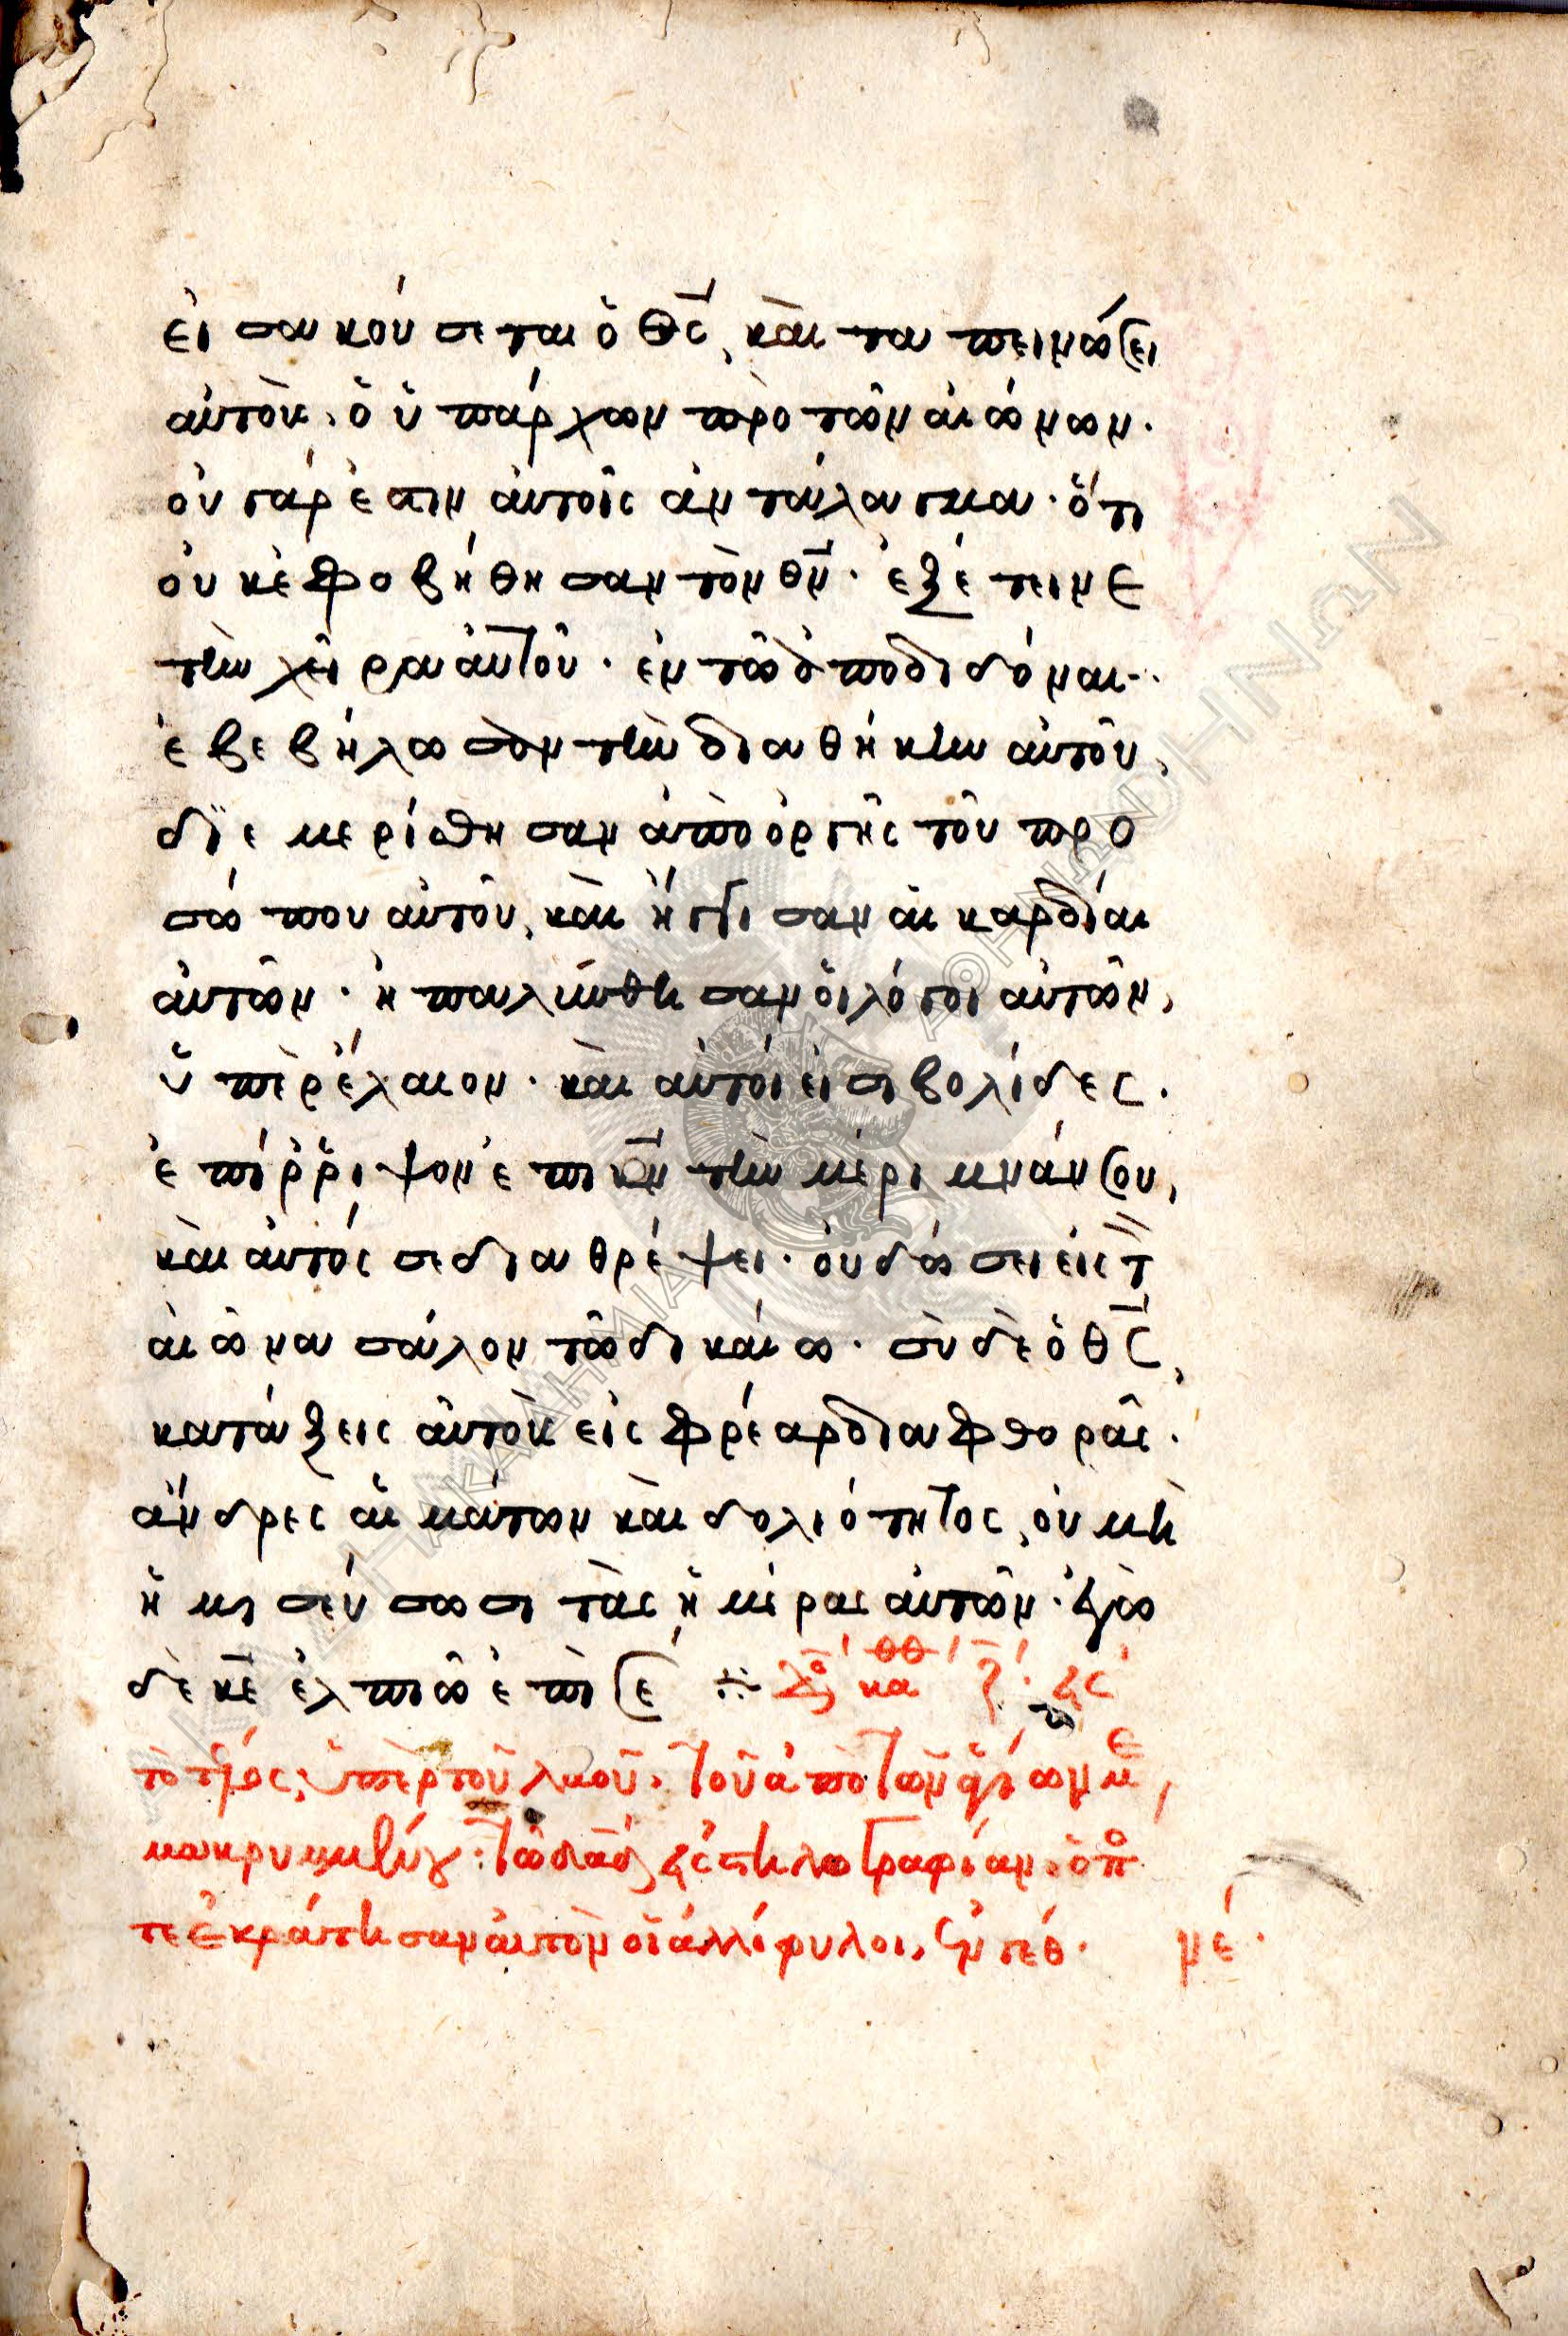 εἰσακούσεται ὁ θς, καὶ ταπεινώσει
αὐτοὺς, ὁ ὑπάρχων πρὸ τῶν αἰώνων.
οὐ γάρ ἐστιν αὐτοῖς ἀντάλαγμα. ὅτι
οὐκ ἐφοβήθησαν τὸν θν. ἐξέτεινε
τὴν χεῖρα αὐτοῦ. ἐν τῶ ἀποδιδόναι.
ἐβεβήλωσαν τὴν διαθήκην αὐτοῦ,
διεμερίσθησαν ἀπὸ ὀργῆς τοῦ προ
σώπου αὐτοῦ, καὶ ἤγγισαν αἱ καρδίαι
αὐτῶν. ἡπαλύνθησαν οἱ λόγοι αὐτῶν,
ὑπὲρ ἔλαιον. καὶ αὐτοί εἰσι βολίδες.
ἐπίρριψον ἐπὶ κν τὴν μέριμνάν σου,
καὶ αὐτός σε διαθρέψει. οὐ δώσει εἰς τ
αἰῶνα σάλον τῶ δικαίω. σὺ δὲ ὁ θς,
κατάξεις αὐτοὺς εἰς φρέαρ διαφθορᾶς.
ἄνδρες αἱμάτων καὶ δολιότητος, οὐ μὴ
ἡμισεύσωσι τὰς ἡμέρας αὐτῶν. ἐγὼ
δὲ κε ἐλπιῶ ἐπὶ σέ
τὸ τέλος, ὑπὲρ τοῦ λαοῦ. τοῦ ἀπὸ τῶν ἁγίων με
μακρυμμένου: τῶ δαδ εἰς στηλογραφίαν. ὁπό
τε ἐκράτησαν αὐτὸν οἱ ἀλλόφυλοι, ἐν γέθ. νέ.